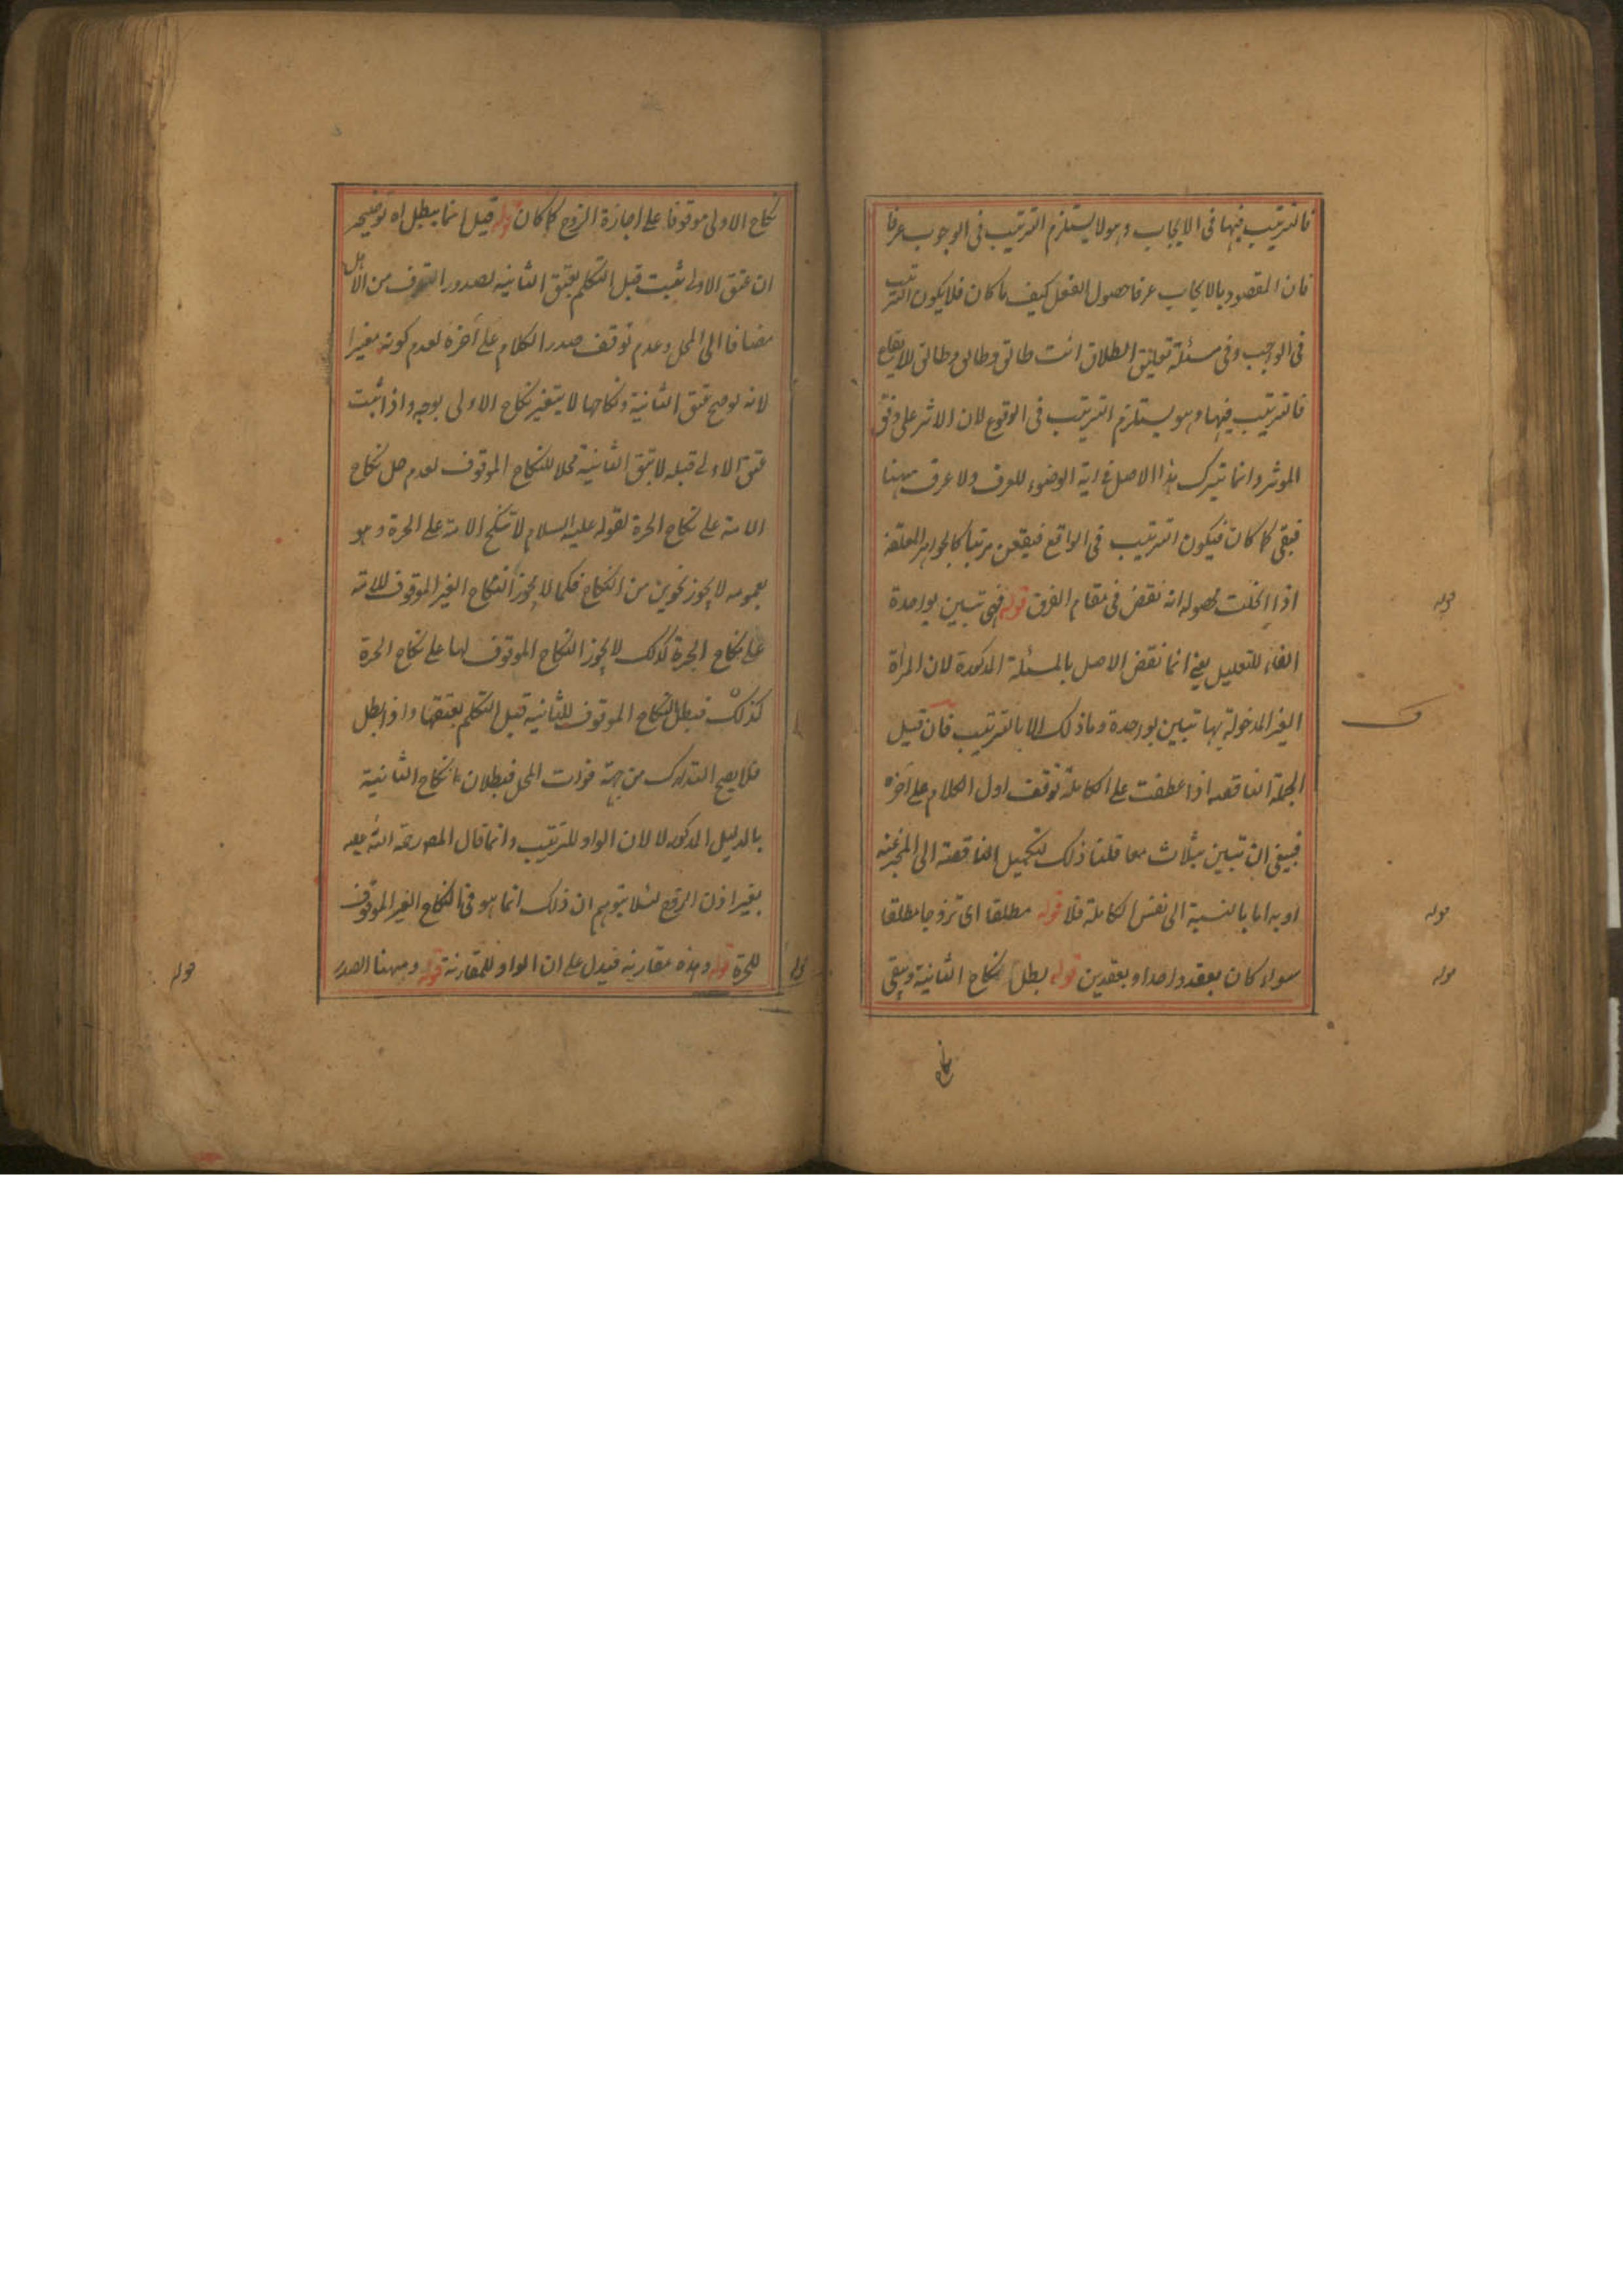 فالترتيب فيها فى الايجاب وهو لا يستلزم الترتيب فى الوجوب عرفا
فان المقصود بالايجاب عرفا حصول الفعل كيف ما كان فلا يكون الترتيب
فى الواجب وفى مسئلة تعليق الطلاق انت طالق وطالق وطالق للايقاع
فالترتيب فيها وهو يستلزم الترتيب فى الوقوع لان الاثر على وفق
الموثر وانما يترك هذا الاصل فى اية الوضوء للعرف ولا عرف ههنا
فبقى كما كان فيكون الترتيب فى الواقع فيقعن مرتبا كالجواهر المعلقة
اذا انحلت محصوله انه نقض فى مقام الفرق قوله فهى تبين بواحدة
الفاء للتعليل يعنى انما نقض الاصل بالمسئلة المذكورة لان المرأة
الغير المدخولة بها تبين بواحدة وما ذلك الا بالترتيب فان قيل
الجملة الناقصة اذا عطفت على الكاملة توقف اول الكلام على آخره
فينبغى ان تبين بثلاث معا قلنا ذلك لتكميل الناقصة الى المخبر عنه
او به اما بالنسبة الى نفس الكاملة فلا قوله مطلقا اى تزوجا مطلقا
سواء كان بعقد واحد او بعقدين قوله بطل نكاح الثانية ويبقى
نكاح
قوله
قوله
قوله
نكاح الاولى موقوفا على اجازة الزوج كما كان قوله قيل انما يبطل اه توضيحه
ان عتق الاولى يثبت قبل التكلم بعتق الثانية لصدور التصرف من الاهل
مضافا الى المحل وعدم توقف صدر الكلام على آخره لعدم كونه مغيرا
لانه لو صح عتق الثانية ونكاحها لا يتغير نكاح الاولى بوجه واذا ثبت
عتق الاولى قبله لا تبقى الثانية محلا للنكاح الموقوف لعدم حل نكاح
الامة على نكاح الحرة لقوله عليه السلام لا تنكح الامة على الحرة وهو
بعمومه لا يجوز نحوين من النكاح فكما لا يجوز النكاح الغير الموقوف للامة
على نكاح الحرة كذلك لا يجوز النكاح الموقوف لها على نكاح الحرة
كذلك فبطل النكاح الموقوف للثانية قبل التكلم بعتقها واذا بطل
فلا يصح التدارك من جهة فوات المحل فبطلان نكاح الثانية
بالدليل المذكور لا لان الواو للترتيب وانما قال المص رحمة الله عليه
بغير اذن الزوج لئلا يتوهم ان ذلك انما هو فى النكاح الغير الموقوف
للحرة قوله وهذه مقارنة فيدل على ان الواو للمقارنة قوله وههنا الصدر
قوله
قوله